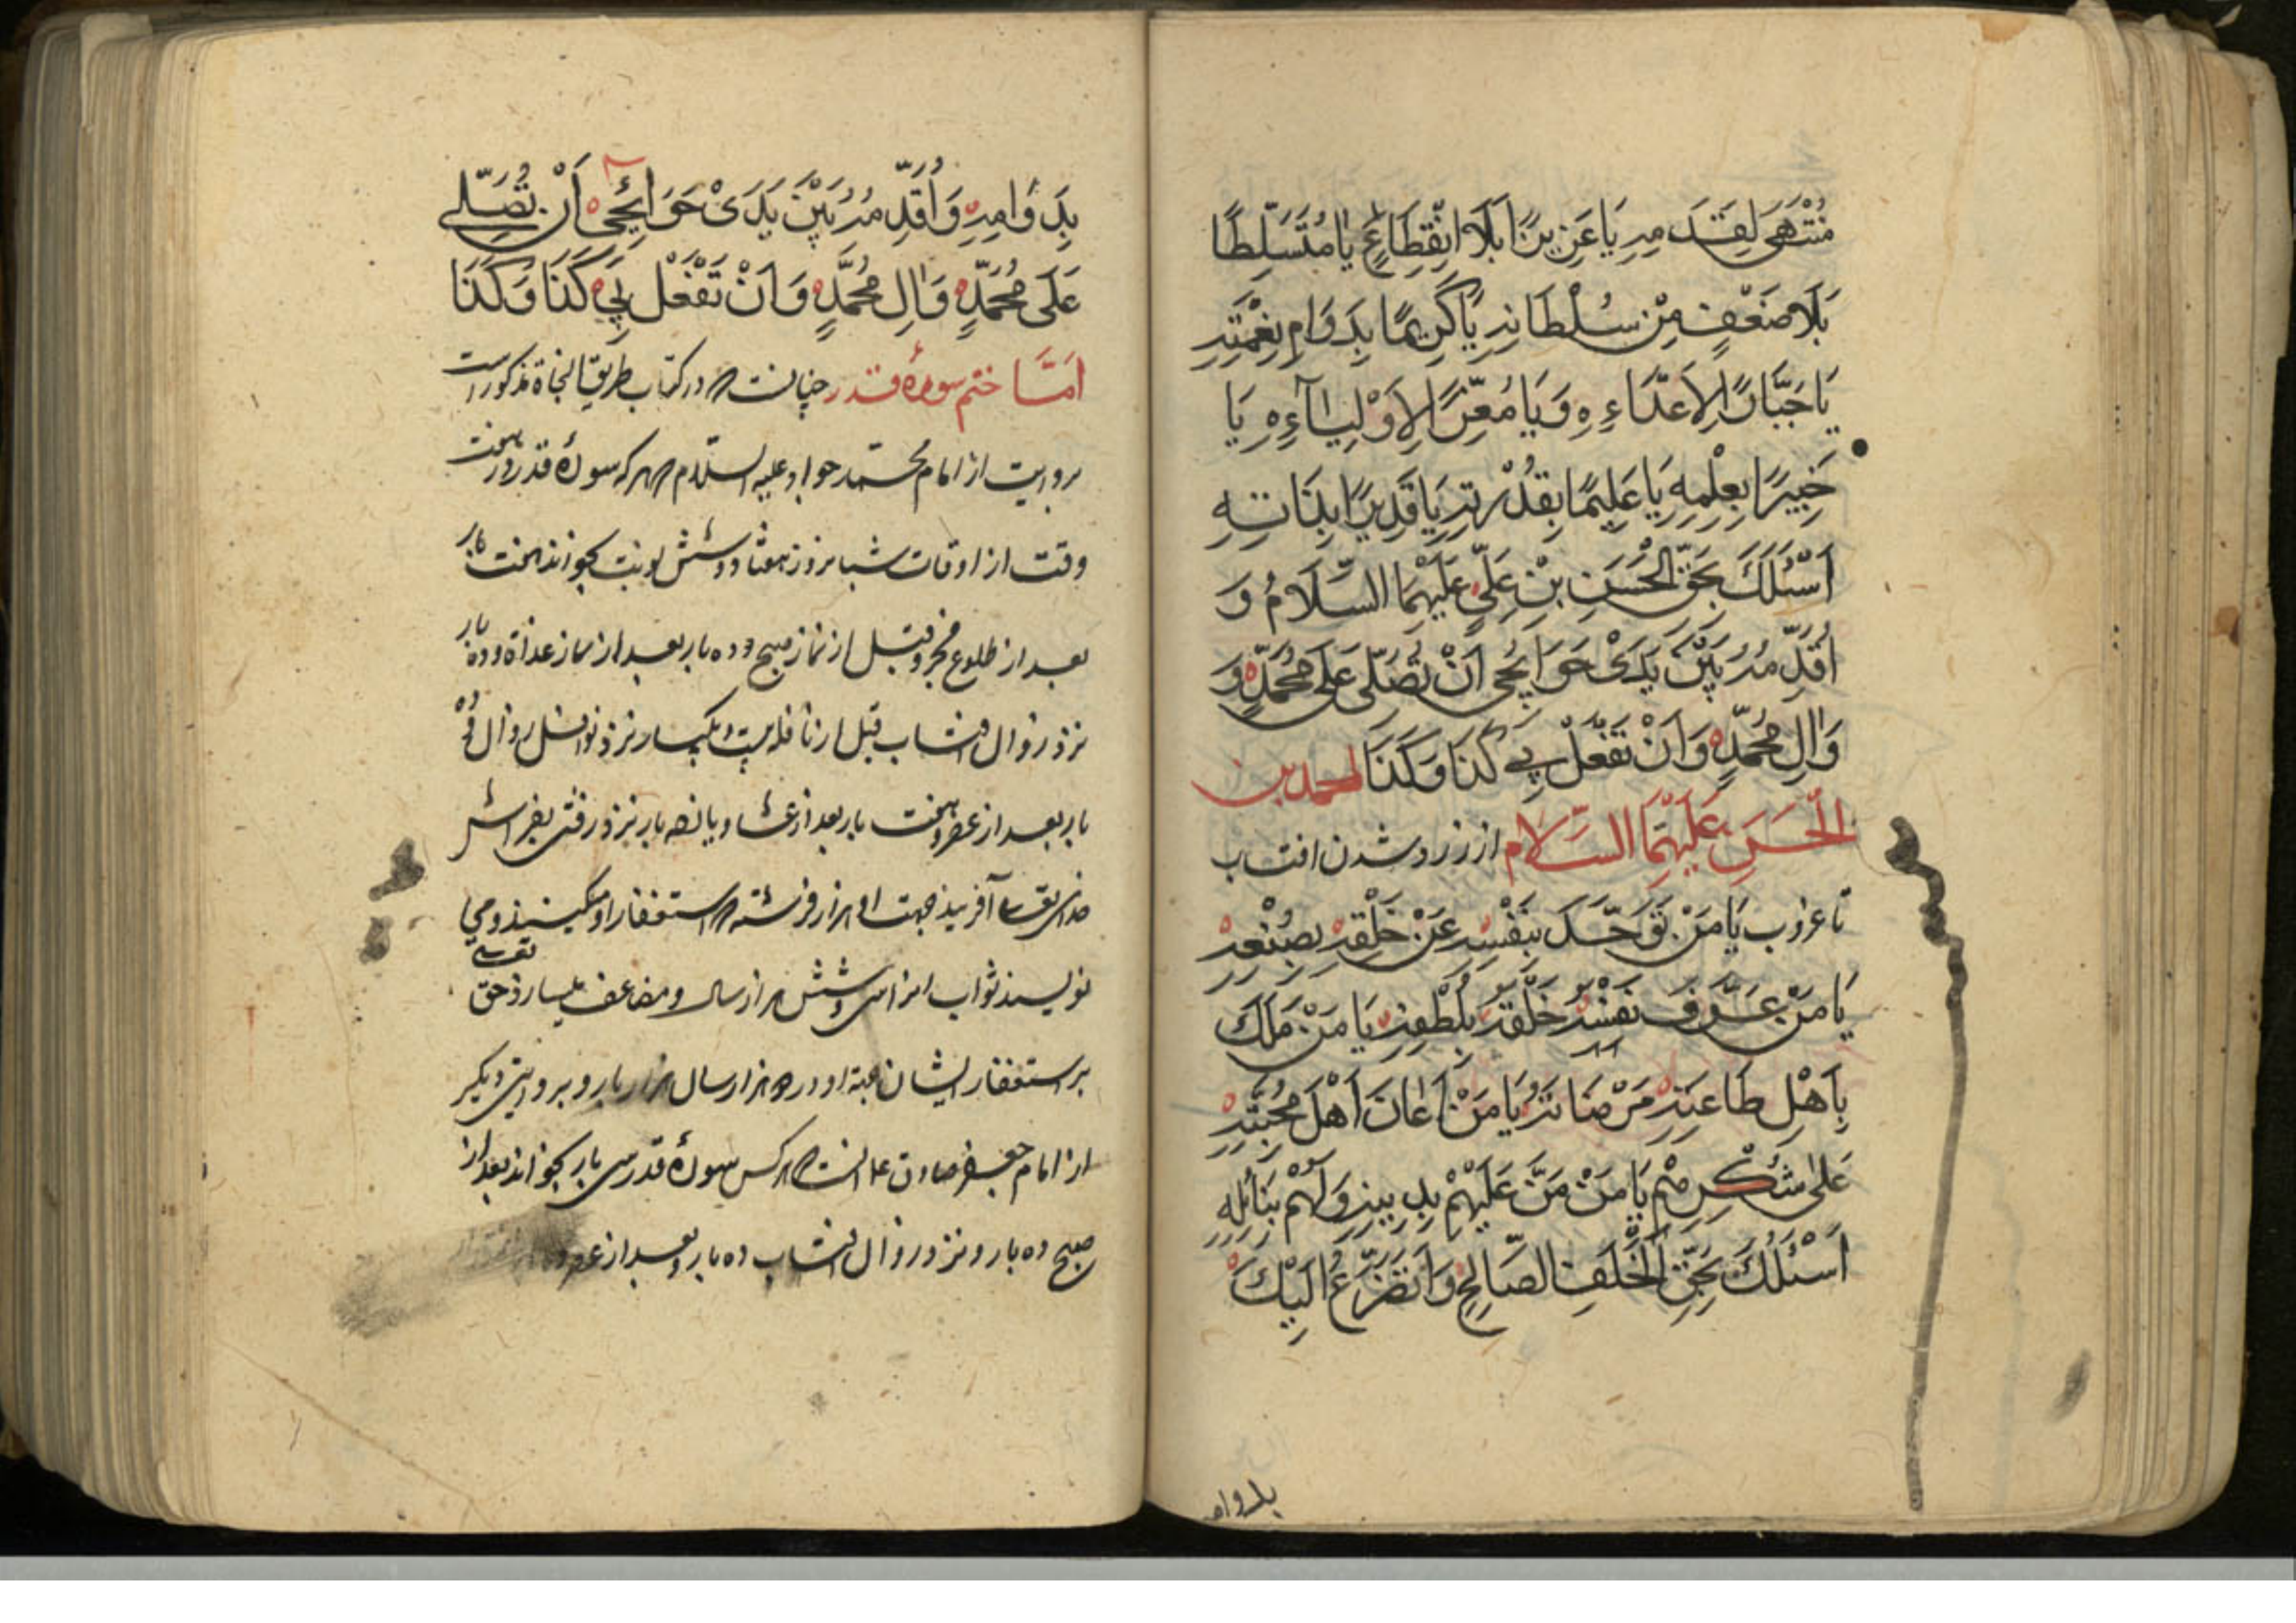 مُنْتَهىً لِقِدَمِهِ يَا عَزِيزًا بِلَا انْقِطَاعٍ يَا مُتَسَلِّطًا
بِلَا ضَعْفٍ مِنْ سُلْطَانِهِ يَا كَرِيمًا بِدَوَامِ نِعْمَتِهِ
يَا جَبَّارًا لِاَعْدَاءِهِ وَيَا مُعِزًّا لِاَوْلِيَآءِهِ يَا
خَبِيرًا بِعِلْمِهِ يَا عَلِيمًا بِقُدْرَتِهِ يَا قَدِيرًا بِذَاتِهِ
اَسْئَلُكَ بِحَقِّ الْحَسَنِ بْنِ عَلِيٍّ عَلَيْهِمَا السَّلَامُ وَ
اُقَدِّمُهُ بَيْنَ يَدَىْ حَوَائِجِى اَنْ تُصَلِّىَ عَلَى مُحَمَّدٍ وَ
وَالِ مُحَمَّدٍ وَاَنْ تَفْعَلَ بِي كَذَا وَكَذَا لمحمد بن
الْحَسَنِ عَلَيْهِمَا السَّلَام از زرد شدن افتاب
تا غروب يَا مَنْ تَوَحَّدَ بِنَفْسِهِ عَنْ خَلْقِهِ بِصُنْعِهِ
يَا مَنْ عَرَّفَ نَفْسَهُ خَلْقَهُ بِلُطْفِهِ يَا مَنْ مَلَكَ
بِاَهْلِ طَاعَتِهِ مَرْضَاتَهُ يَا مَنْ اَعَانَ اَهْلَ مَحَبَّتِهِ
عَلَى شُكْرِهِ يَا مَنْ مَنَّ عَلَيْهِمْ بِدِينِهِ وَلَهُمْ بِنَائِلِهِ
اَسْئَلُكَ بِحَقِّ الْخَلَفِ الصَّالِحِ وَاَتَضَرَّعُ اِلَيْكَ
بدوام
بِدَوَامِهِ وَاُقَدِّمُهُ بَيْنَ يَدَىْ حَوَائِجِى اَنْ تُصَلِّىَ
عَلَى مُحَمَّدٍ وَالِ مُحَمَّدٍ وَاَنْ تَفْعَلَ بِي كَذَا وَكَذَا
اَمَّا ختم سورهٔ قدر چنانست که در کتاب طریق النجاة مذکور است
بروایت از امام محمد جواد علیه السلام که هر که سورهٔ قدر در هفت
وقت از اوقات شبانروز هفتاد و شش نوبت بخواند هفت بار
بعد از طلوع فجر و قبل از نماز صبح و ده بار بعد از نماز غداة و ده بار
نزد زوال افتاب قبل از نافله بیست و یکبار نزد نوافل زوال و ده
بار بعد از عصر و هفت بار بعد از عشا و یانصه بار نزد رفتن بفراش
خدای تعالی آفریند جهت او هزار فرشته که استغفار او میکنند و می
نویسند ثواب او را سی و شش هزار سال و مضاعف میسازد حق تعالی
بر استغفار ایشان جهة او در دو هزار سال هزار بار و بروایتی دیگر
از امام جعفر صادق ع انست که هر کس سورهٔ قدر سی بار بخواند بعد از
صبح ده بار و نزد زوال افتاب ده بار و بعد از عصر